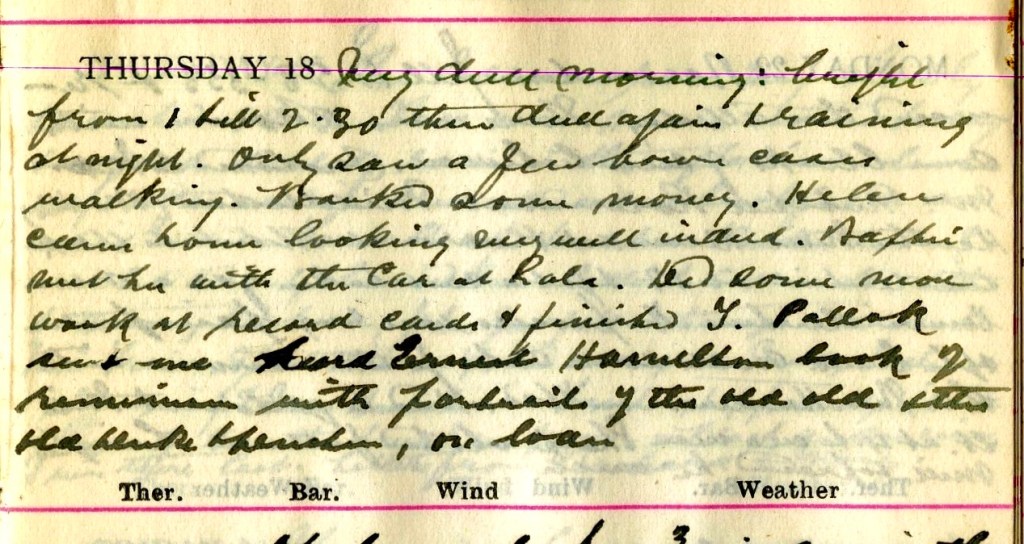 THURSDAY 18 Very dull morning: bright
from 1 till 2.30 then dull again & raining
at night. Only saw a few town cases
walking. Banked some money. Helen
came home looking very well indeed.
met her with the Car at Did some more
work at record cards & finished J. Pollok
sent me Lord Ernest Hamilton book of
with portraits of the old old
old Duke & Duchess, on loan
Ther. Bar. Wind Weather